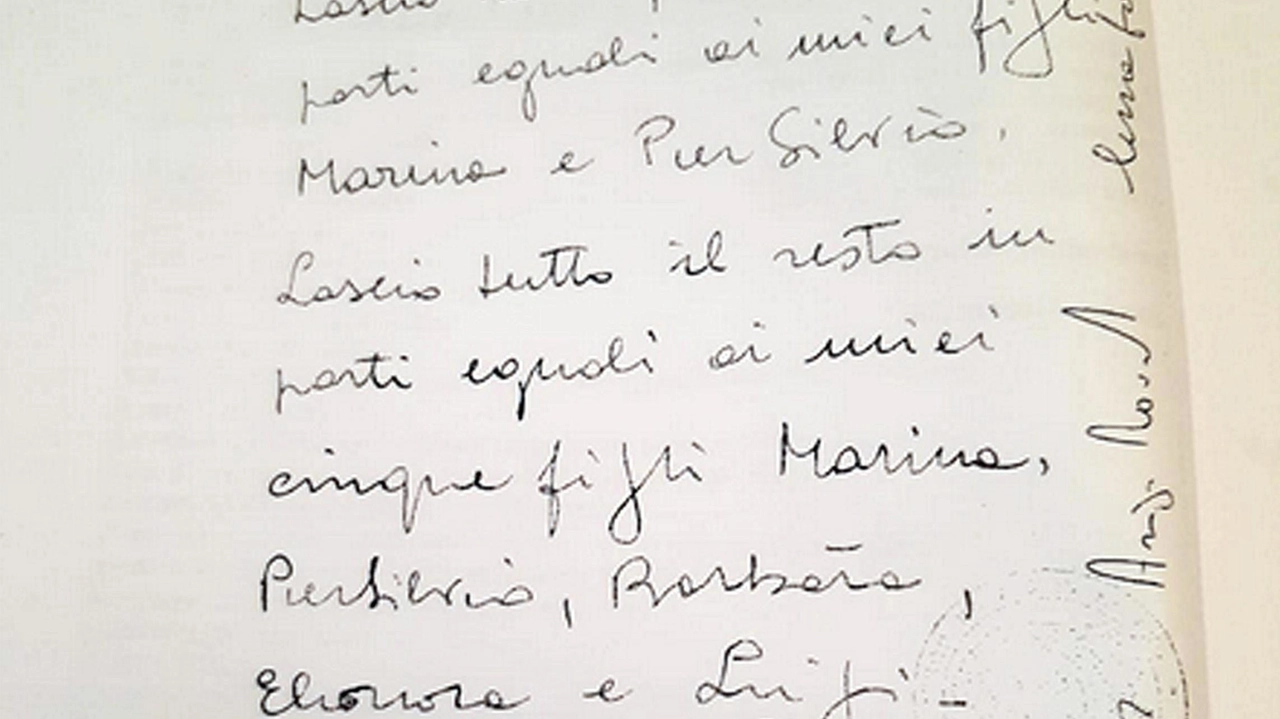 Lascio
parti eguali ai miei figli
Marina e Pier Silvio.
Lascio tutto il resto in
parti eguali ai miei
cinque figli Marina,
PierSilvio, Barbara,
Eleonora e Luigi-